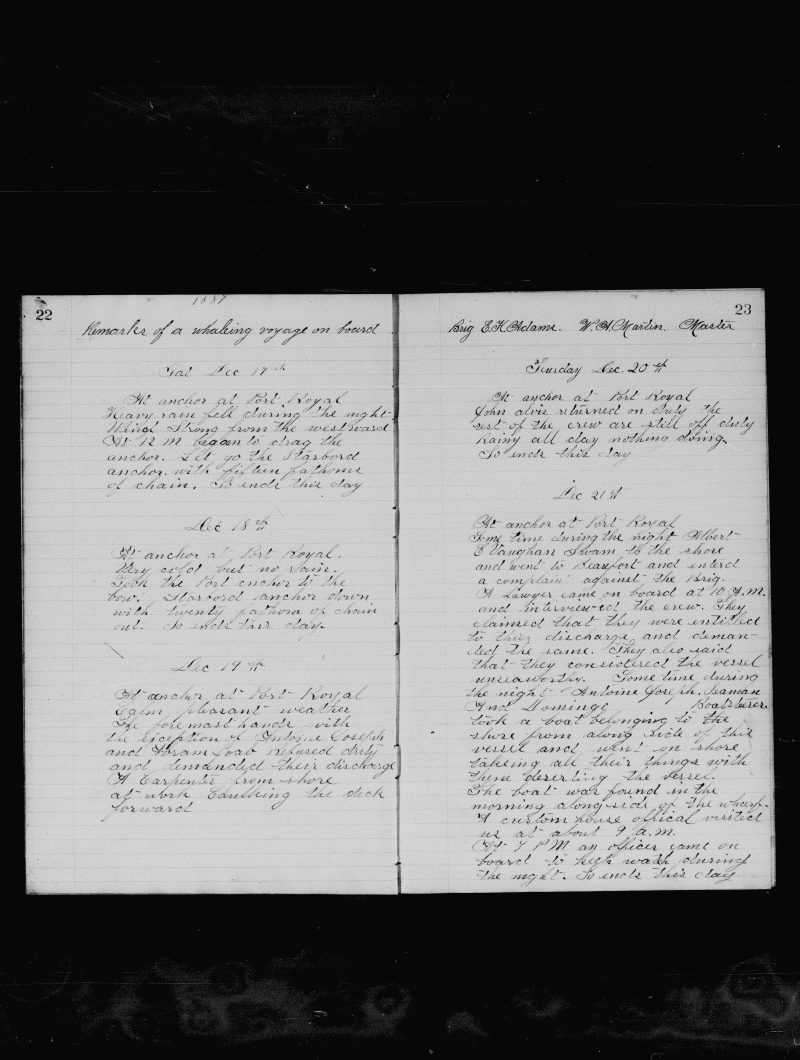 22
1887
Remarks of a whaleing voyage on board
Sat Dec 17th
At anchor at Port Royal
Heavy rain fell during the night
Wind strong from the westward
At 12 M began to drag the
anchor. Let go the Starbord
anchor with fifteen fathoms
of chain. So ends this day
Dec 18th
At anchor at Port Royal.
Very cold but no rain.
Took the Port anchor to the
bow. Starbord anchor down
with twenty fathom of chain
out. So ends this day.
Dec 19th
At anchor at Port Royal
Calm pleasant weather
The foremast hands with
the exception of Antoine Joseph
and Abram refused duty
and demanded their discharge
A Carpenter from shore
at work Caulking the deck
forward
23
Brig E.H. Adams. W.A. Martin. Master
Teusday Dec. 20th
At anchor at Port Royal
John alvie returned on duty the
rest of the crew are still off duty
Rainy all day nothing doing.
So ends this day
Dec 21st
At anchor at Port Royal
Some time during the night Albert
E Vaughan Swam to the shore
and went to Beaufort and enterd
a complain against the Brig.
A Lawyer came on board at 10 A.M.
and interviewed the crew. They
claimed that they were entitled
to their discharge and deman-
ded the same. They also said
that they considered the vessel
unseaworthy. Some time during
the night Antoine Joseph. Seaman
And Domingo Boatsturer.
took a boat belonging to the
shore from along side of this
vessel and went on shore
takeing all their things with
them deserting the vessel.
The boat was found in the
morning along side of the wharf.
A custom house offical visited
us at about 9 a.m.
At 7 PM an officer came on
board to keep wach during
the night. So ends this day